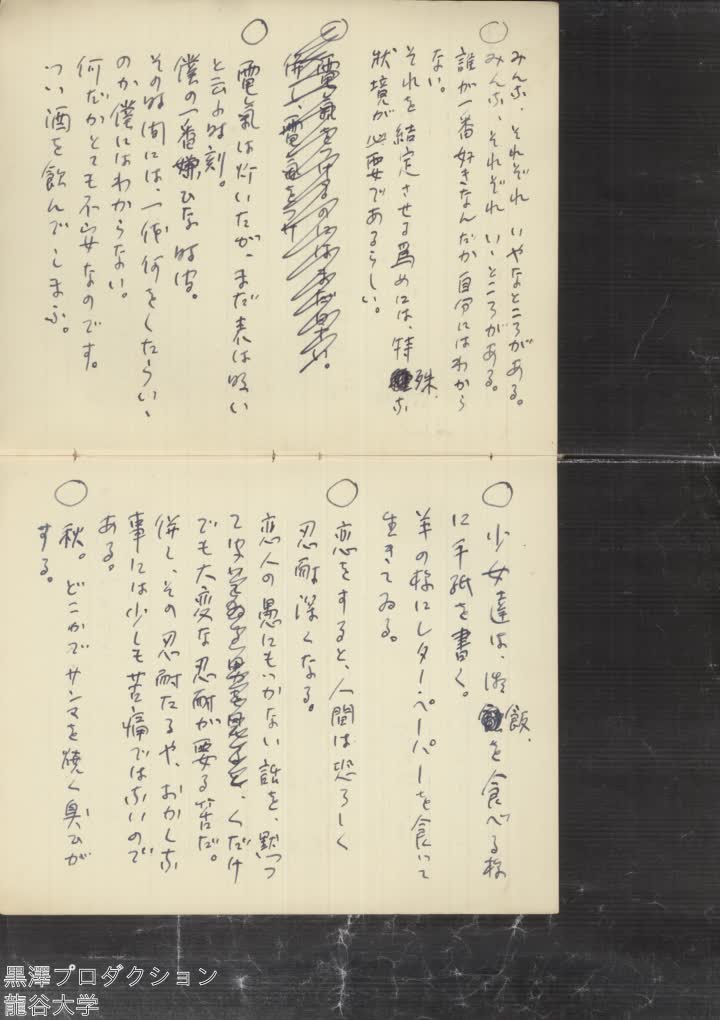 ○
みんな、それぞれ いやなところがある。
みんな、それぞれ いゝところがある。
誰が一番好きなんだか自分にはわから
ない。
それを結定させる為めには、特殊な
状境が必要であるらしい。
○
電氣をつけるのにはまだ早い。
併し、電氣をつけ
○
電氣は灯いたが、まだ表は明い
と云ふ時刻。
僕の一番嫌ひな時間。
その時間には、一体何をしたらいゝ
のか僕にはわからない。
何だかとても不安なのです。
つい酒を飲んでしまふ。
○
少女達は、御飯を食べる様
に手紙を書く。
羊の様にレター・ペーパーを食いて
生きてゐる。
○
恋をすると、人間は恐ろしく
忍耐深くなる。
恋人の愚にもつかない話を、黙つ
て
くだけ
でも大変な忍耐が要る筈だ。
併し、その忍耐たるや、おかしな
事には少しも苦痛ではないので
ある。
○
秋。どこかでサンマを焼く臭ひが
する。
黒澤プロダクション
龍谷大学